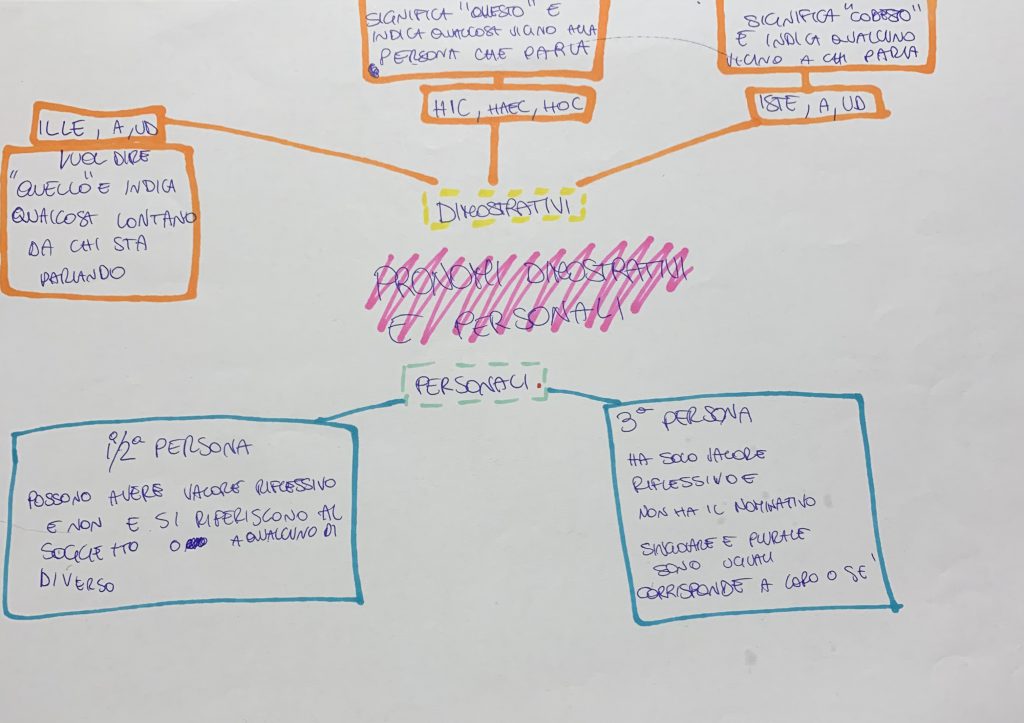 SIGNIFICA "QUESTO" E
INDICA QUALCOSA VICINO ALLA
PERSONA CHE PARLA
HIC, HAEC, HOC
SIGNIFICA "CODESTO"
E INDICA QUALCUNO
VICINO A CHI PARLA
ISTE, A, UD
ILLE, A, UD
VUOL DIRE
"QUELLO" E INDICA
QUALCOSA LONTANO
DA CHI STA
PARLANDO
DIMOSTRATIVI
PRONOMI DIMOSTRATIVI
E PERSONALI
PERSONALI
1ª/2ª PERSONA
POSSONO AVERE VALORE RIFLESSIVO
E NON E SI RIFERISCONO AL
SOGGETTO O A QUALCUNO DI
DIVERSO
3ª PERSONA
HA SOLO VALORE
RIFLESSIVO E
NON HA IL NOMINATIVO
SINGOLARE E PLURALE
SONO UGUALI
CORRISPONDE A LORO O SE'